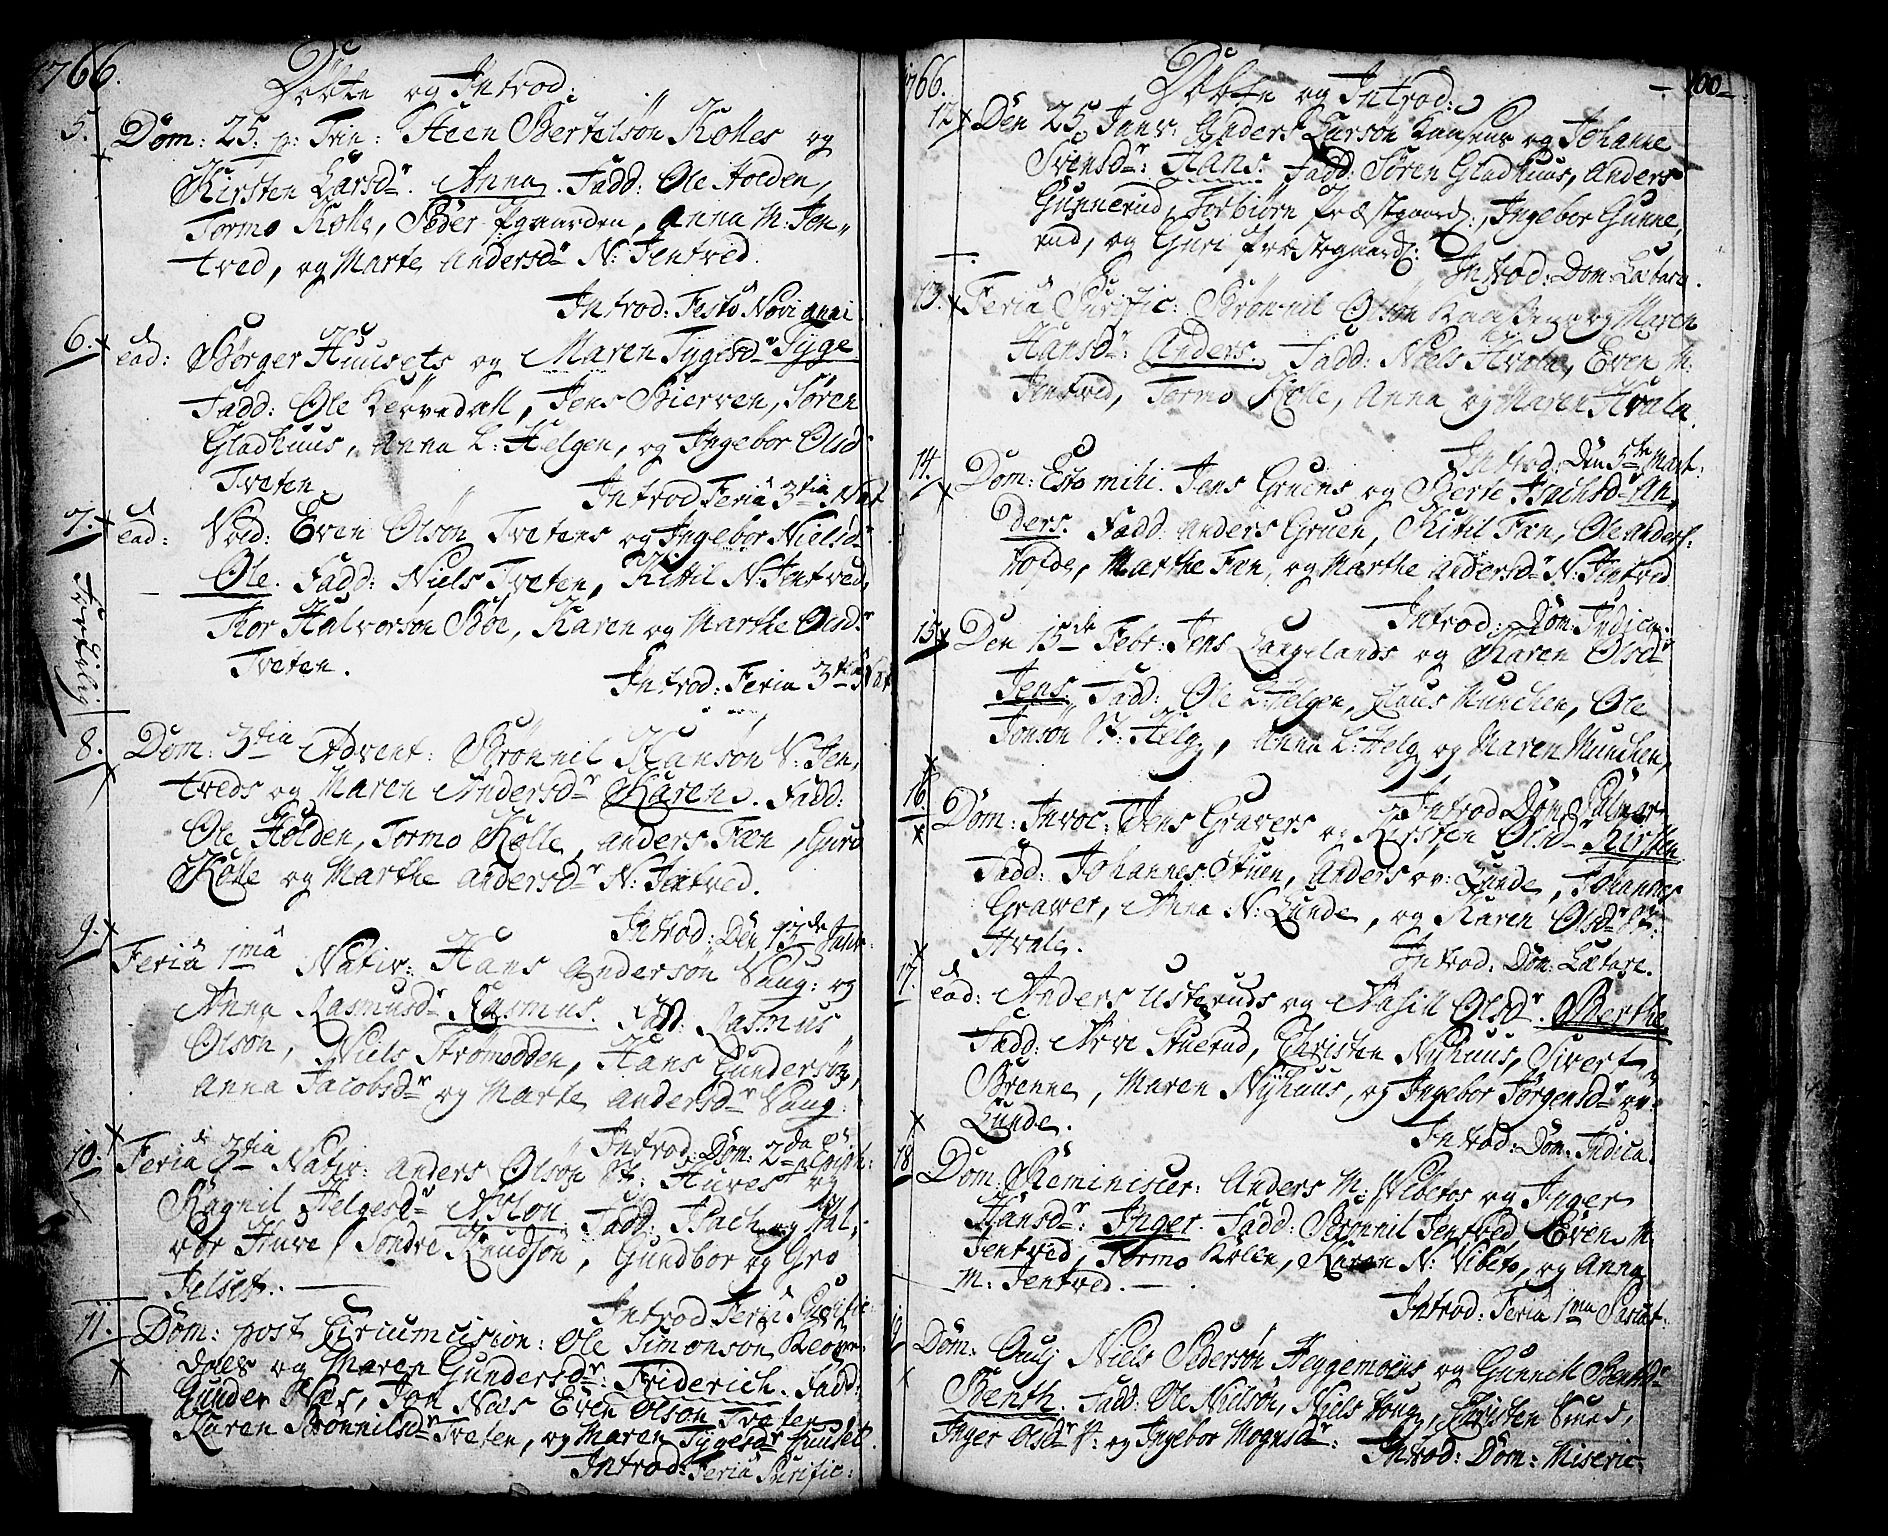 1766.
Døbte og Introd:
5. Dom: 25. p: Trin: Steen Bertelsøn Kolles og
Kirsten Larsd.r Anna. Fadd: Ole Holden,
Tormo Kolle, Peder Pgaarden, Anna M: Jen„
tved, og Marte Andersd.r N: Jentved.
Introd: Festo Novi anni
6. ead: Børger Huusets og Maren Tygesd.r Tyge
Fadd: Ole Kiøvedall, Jens Bierven, Søren
Gladhuus, Anna L: Helgen, og Ingebor Olsd.r
Tveten.
Introd Feriâ 3tiâ Nat
7. ead: Ned: Even Olsøn Tvetens og Ingebor Nielsd.r
Ole. Fadd: Niels Tveten, Kittil N: Jentved,
Thor Halvorsøn Bøe, Karen og Marthe Olsd.r
Tveten.
Introd: Feria 3tia Nat
8. Dom: 3tia Advent: Brønnil Hansøn N: Jen„
tveds og Maren Andersd.r Karen. Fadd:
Ole Holden, Tormo Kolle, Anders Fæn, Guru
Kolle og Marthe Andersd.r N: Jentved.
Introd: Den 13de Janv:
9. Feriâ 1mâ Nativ: Hans Andersøn Vaug: og
Anna Rasmusd.r Rasmus. Fadd: Rasmus
Olsøn, Niels Strømodden, Hans Gundersøn,
Anna Jacobsd.r og Marte Andersd.r Vaug:
Introd: Dom: 2da p Epiph:
10. Feriâ 3tia Nativ: Anders Olsøn St: Huves og
Ragnil Helgesd.r Aslou. Fadd: Isach og Hal„
vor Huve, Sondre Knudsøn, Gundbor og Gro
Jelset.
Introd Feriâ Purific:
11. Dom: post Circumcision: Ole Simonsøn Kiøve„
dals og Maren Gundersd.r Friderich. Fadd:
Gunder Næs, Jon Næs Even Olsøn Tveten
Karen Brønnilsd.r Tveten, og Maren Tygesd.r Huuset.
Introd: Feriâ Purific:
1766. 100
Døbte og Introd:
12. Den 25. Janv: Anders Larsøn og Johanne
Svensd.r: Hans. Fadd: Søren Gladhuus, Anders
Gunnerud, Torbiørn Præstgaard:, Ingebor Gunne„
rud, og Guri Præstegaard:
Introd: Dom: Lætare.
13. Feria Purific: Brønnil Olsøn og Maren
Hansd.r: Anders. Fadd: Niels Hvala, Even M:
Jentved, Tormo Kolle, Anna og Maren Hvala.
Introd: Den 5te Mart:
14. Dom: Esto mihi. Jens Gruens og Berte Isachsd.r An„
ders. Fadd: Anders Gruen, Kittil Fæn, Ole Anders:
Holde, Marthe Fæn, og Marthe Andersd.r N: Jentved
Introd: Dom: Judica.
15. Den 15de Febr: Jens Langelands og Karen Olsd.r
Jens. Fadd: Ole L: Helgen, Claus Munchen, Ole
Jonsøn St: Helg:, Anna L: Helg: og Maren Munchen,
Introd Dom: Palmar
16. Dom: Invoc: Jens Gravers og Kirsten Olsd.r Kirsten
Fadd: Johannes Stuen, Anders ov: Lunde, Johannes
Graver, Anna N: Lunde, og Karen Olsd.r St:
Hvale.
Introd: Dom: Lætare.
17. ead: Anders Usteruds og Aasill Olsd.r. Berthe
Fadd: Arve Stuerud, Christen Nyhuus, Sivert
Brenne, Maren Nyhuus, og Ingebor Jørgensd.r ov:
Lunde.
Introd: Dom: Judica.
18. Dom: Reminiscer: Anders M: Vibetos og Inger
Hansd.r: Inger. Fadd: Brønnil Jentved, Even M
Jentved, Tormo Kolle, Karen N: Vibeto, og Anna
M: Jentved.
Introd: Feria 1ma Paschat.
19. Dom: Ocuj Niels Pedersøn Heggemoens og Gunnell Benthd.r
Benth. Fadd: Ole Nielsøn, Niels Houg, Christen Smed,
Inger Olsd.r St: og Ingebor Mognsd.r:
Introd: Dom: Miseric: